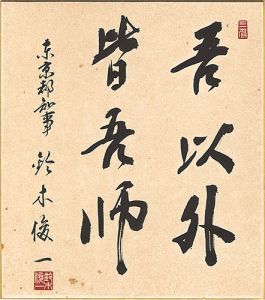 吾以外
皆吾師
东京都知事
鈴木俊一